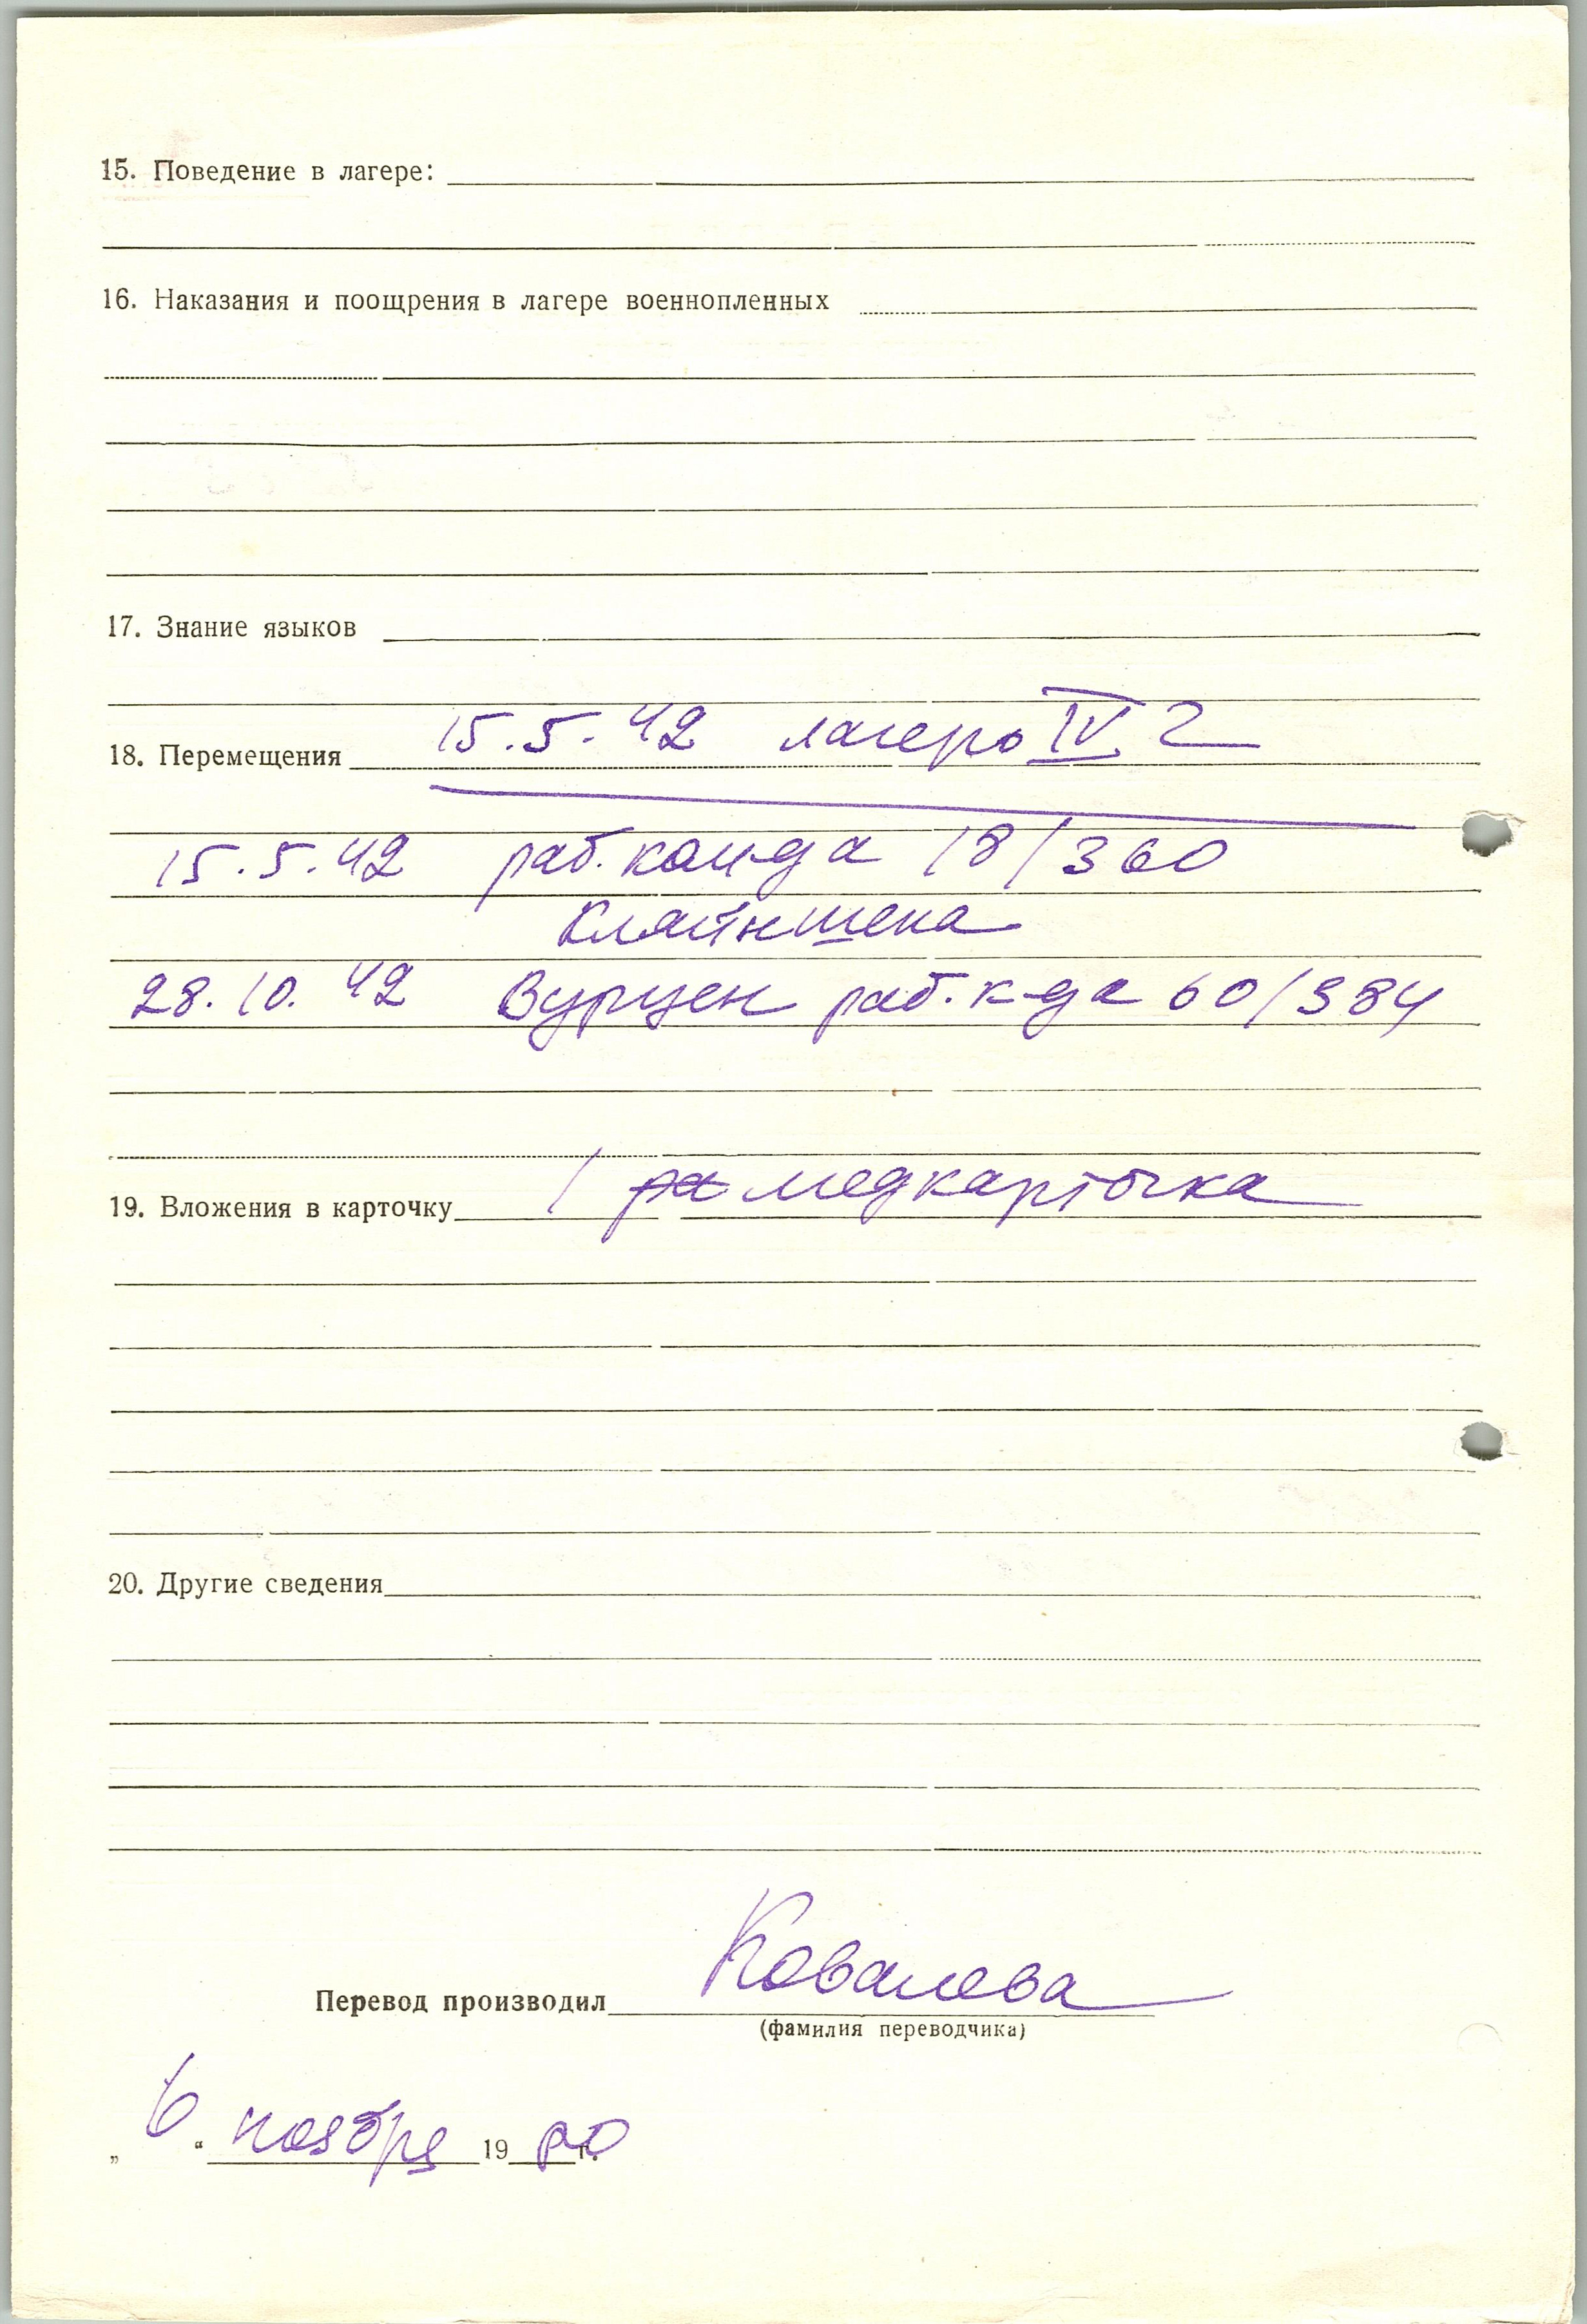 15. Поведение в лагере:
16. Наказания и поощрения в лагере военнопленных
17. Знание языков
18. Перемещения 15.5.42 лагерь IV Г
15.5.42 раб. кан-да 18/360
Клайншепа
28.10.42 Вурцен раб. к-да 60/384
19. Вложения в карточку 1 медкарточка
20. Другие сведения
Перевод производил Ковалева
(фамилия переводчика)
„6“ ноября 19 г.